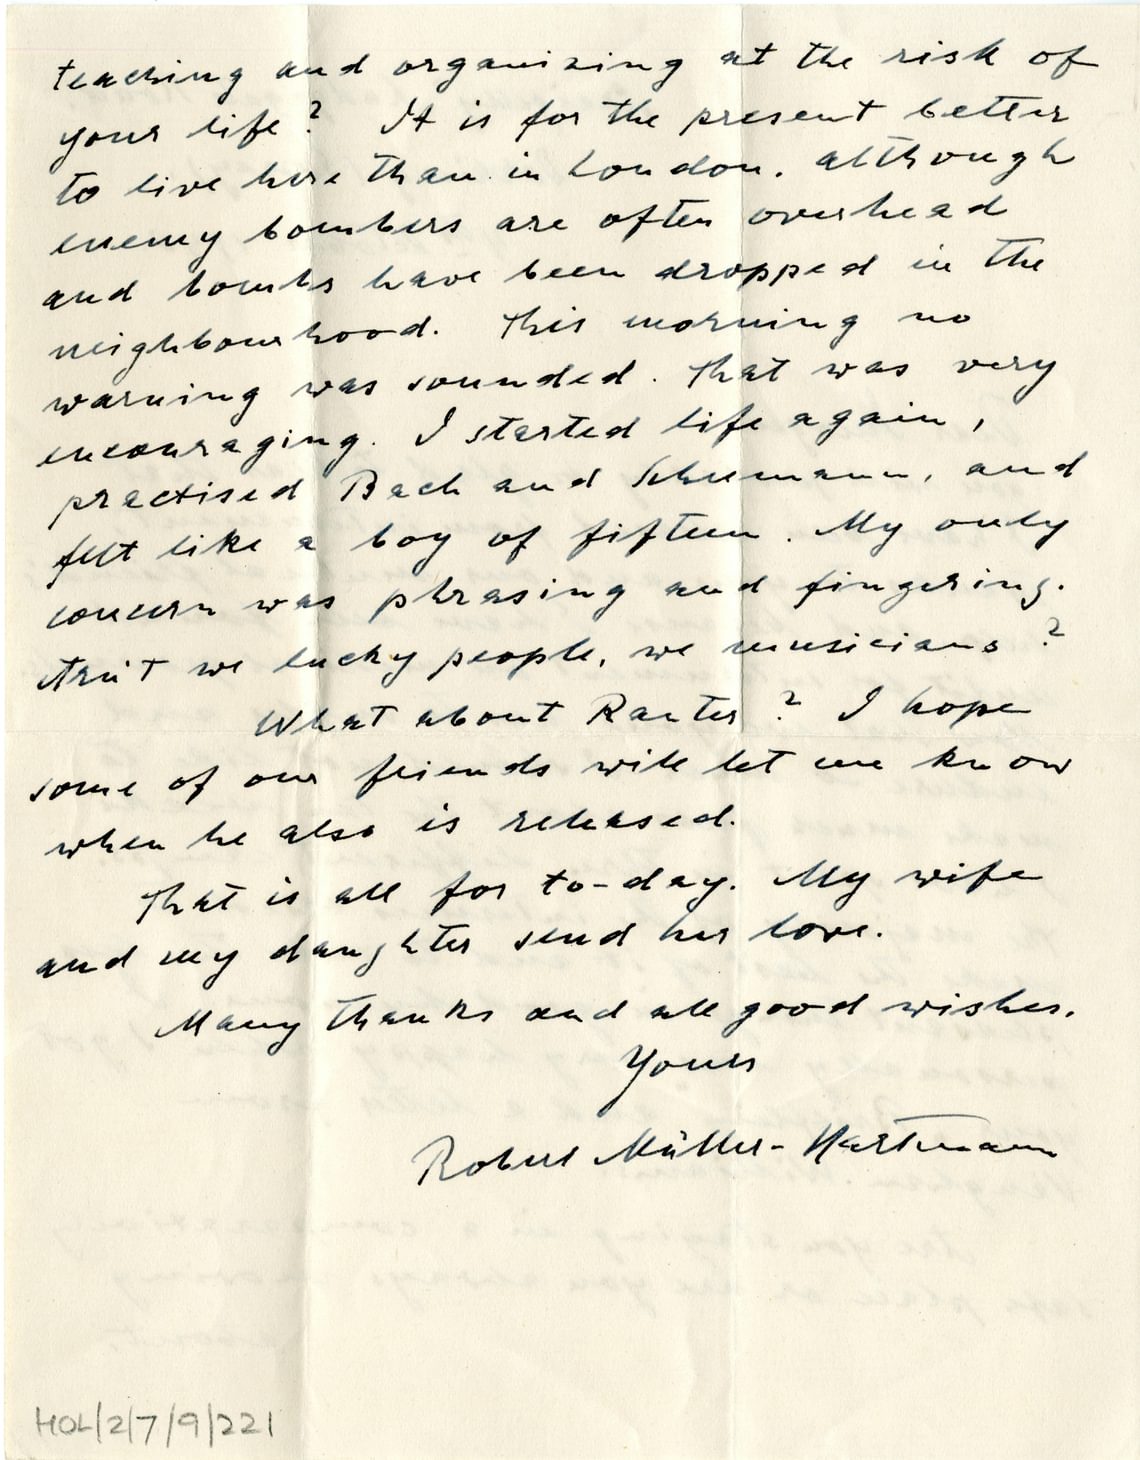 teaching and organizing at the risk of
your life? It is for the present better
to live here than in London, although
enemy bombers are often overhead
and bombs have been dropped in the
neighbourhood. This morning no
warning was sounded. That was very
encouraging. I started life again,
practised Bach and Schumann, and
felt like a boy of fifteen. My only
concern was phrasing and fingering.
Arn't we lucky people, we musicians?
What about Rauter? I hope
some of our friends will let me know
when he also is released.
That is all for to-day. My wife
and my daughter send her love.
Many thanks and all good wishes.
Yours
Robert Müller-Hartmann
HOL/2/7/9/221